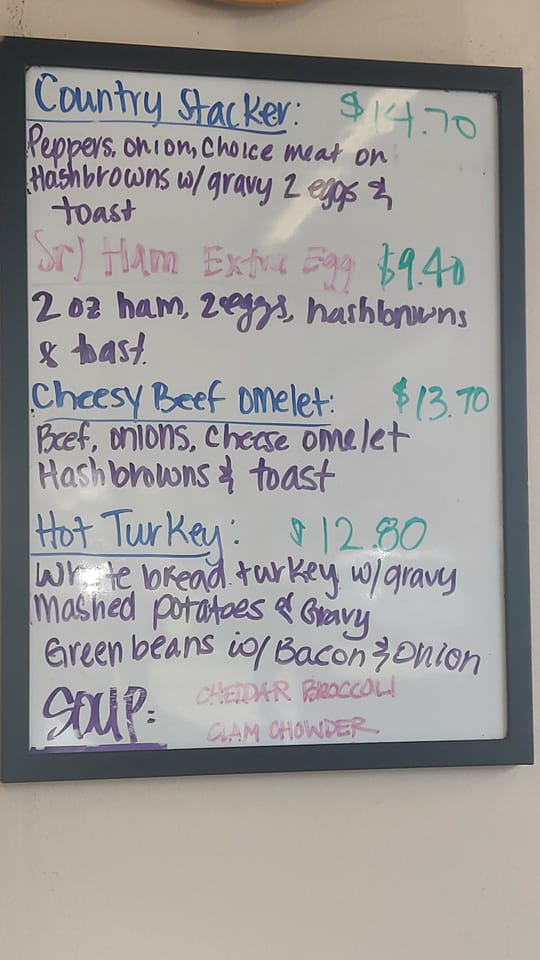 Country Stacker: $14.70
Peppers, onion, Choice meat on
Hashbrowns w/ gravy 2 eggs &
toast
Sr) Ham Extra Egg $9.40
2 oz ham, 2 eggs, hashbrowns
& toast.
Cheesy Beef omelet: $13.70
Beef, onions, Cheese omelet
Hashbrowns & toast
Hot Turkey: $12.80
White bread turkey w/gravy
Mashed potatoes & Gravy
Green beans w/ Bacon & onion
SOUP: CHEDDAR BROCCOLI
CLAM CHOWDER